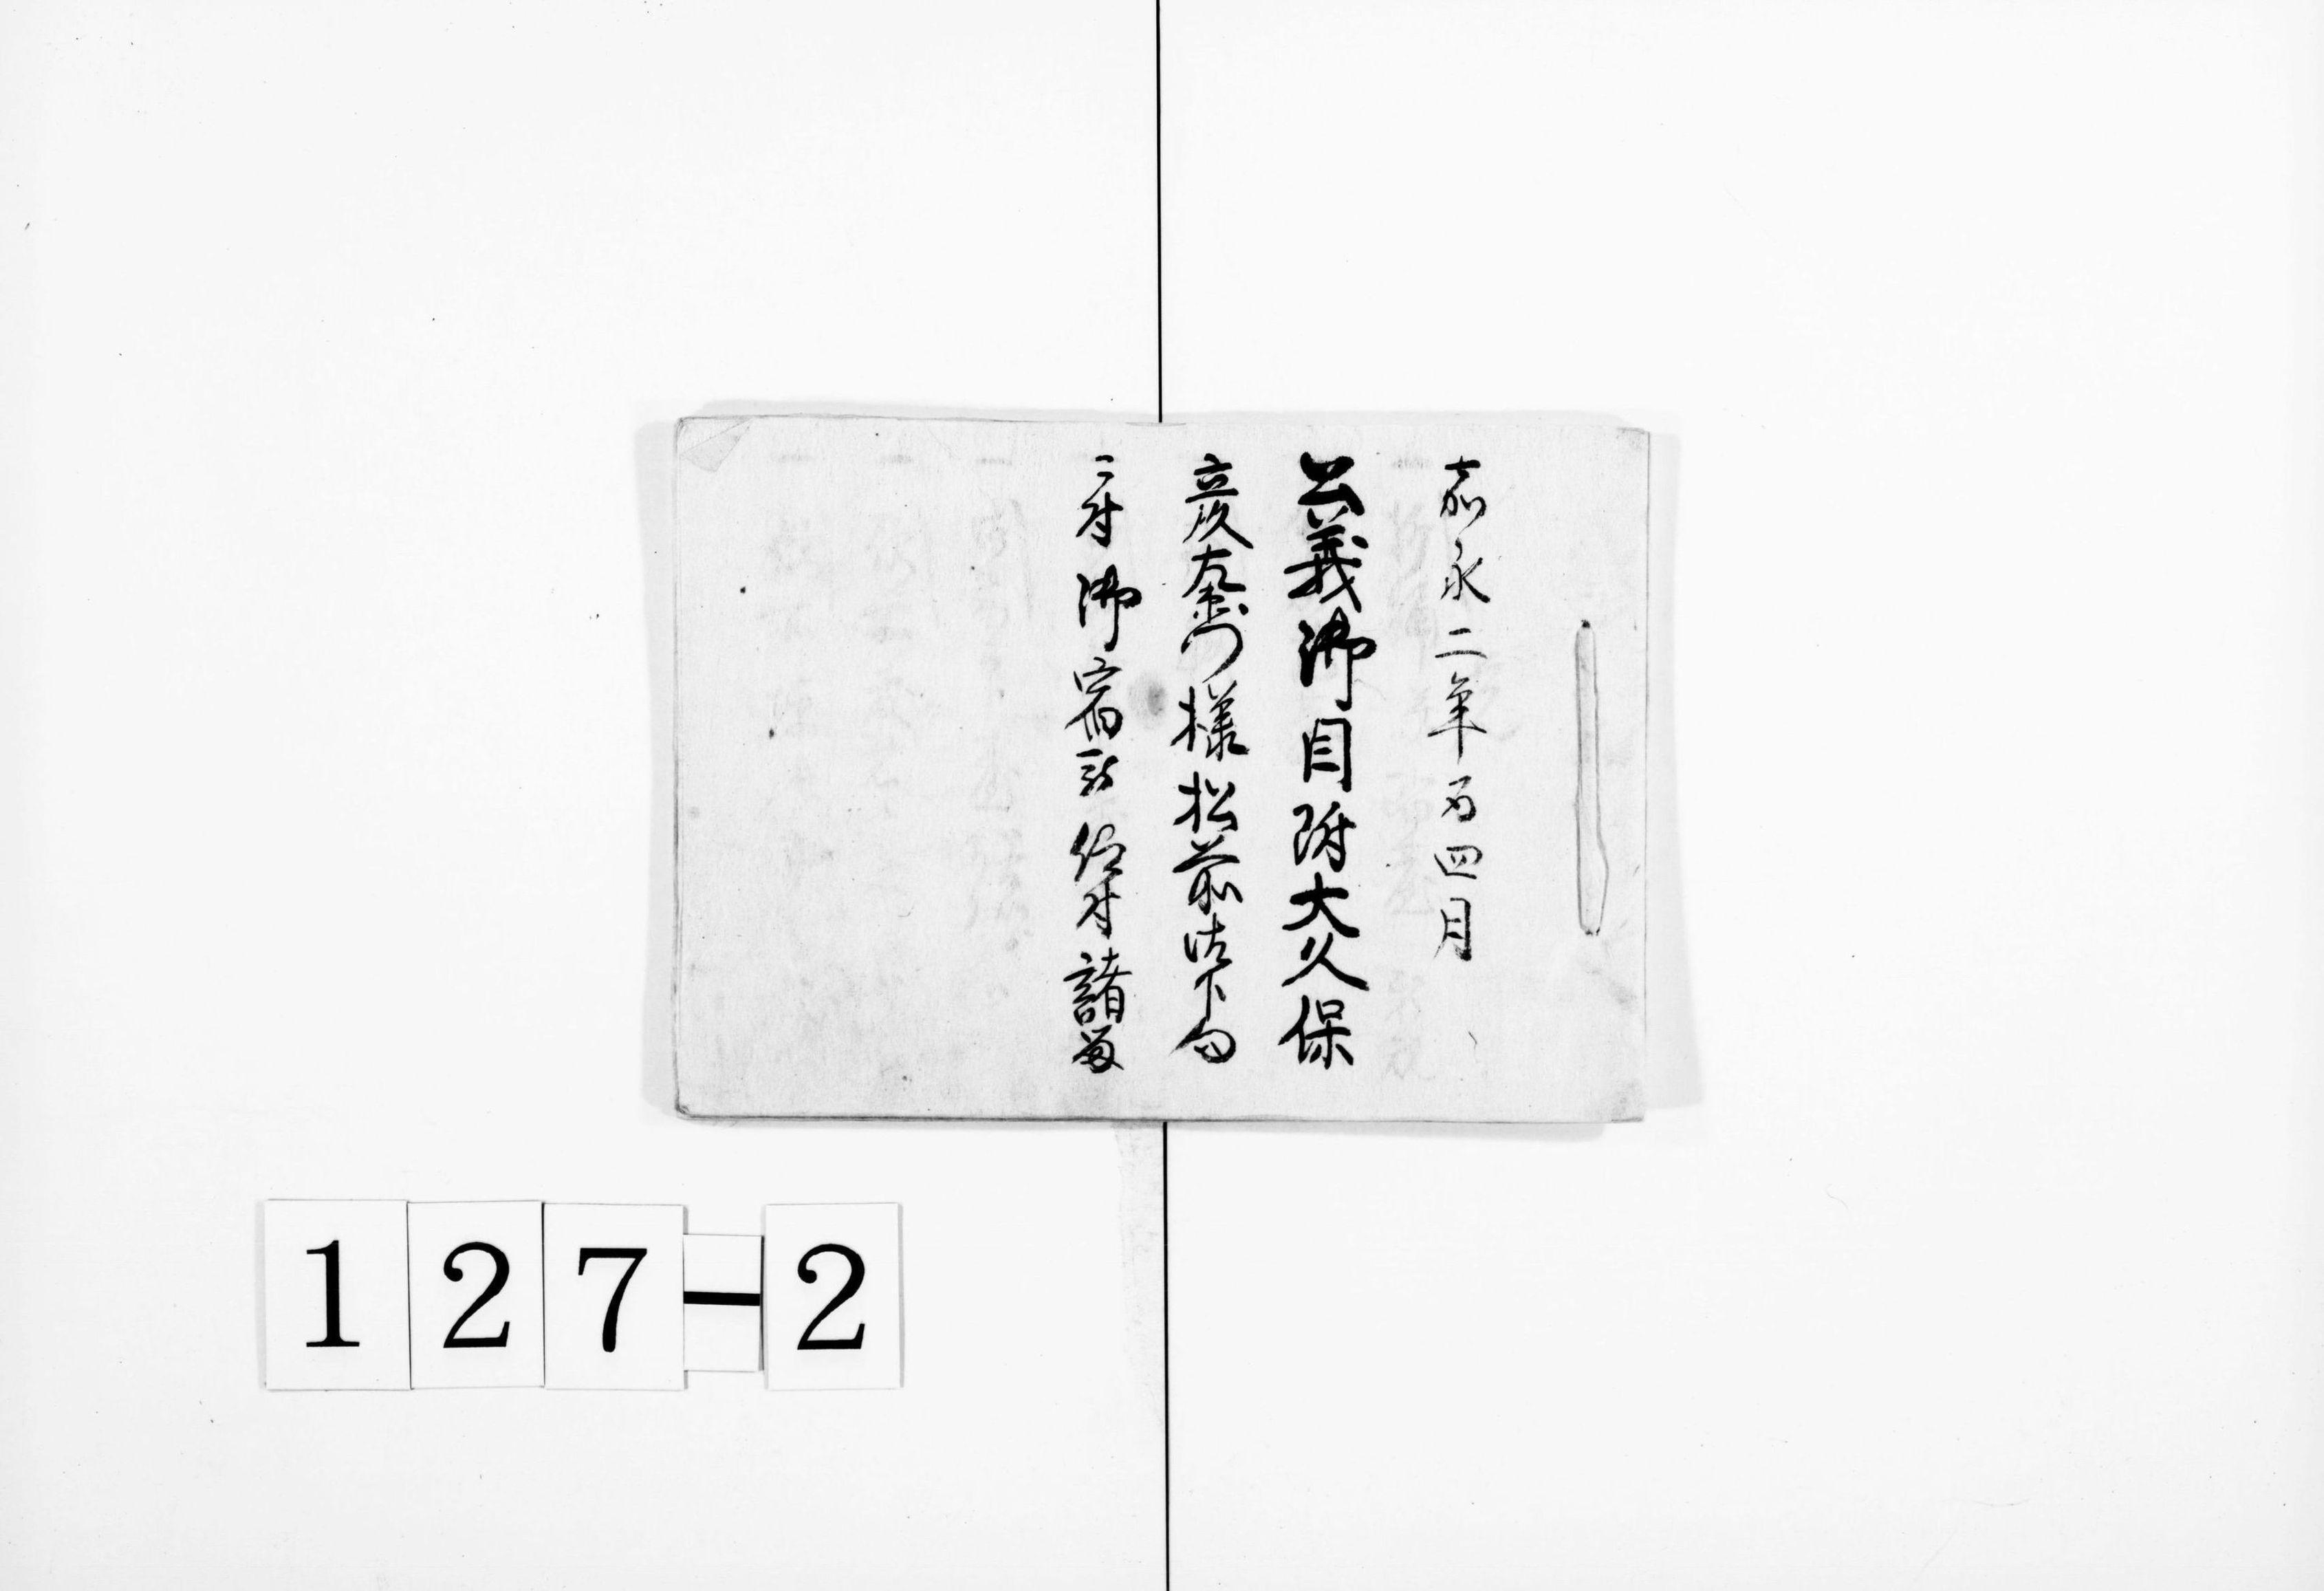 嘉永二年酉四月
公義御目附大久保
彦左衛門様松前御下向
ニ付御宿被仰付諸留
127-2